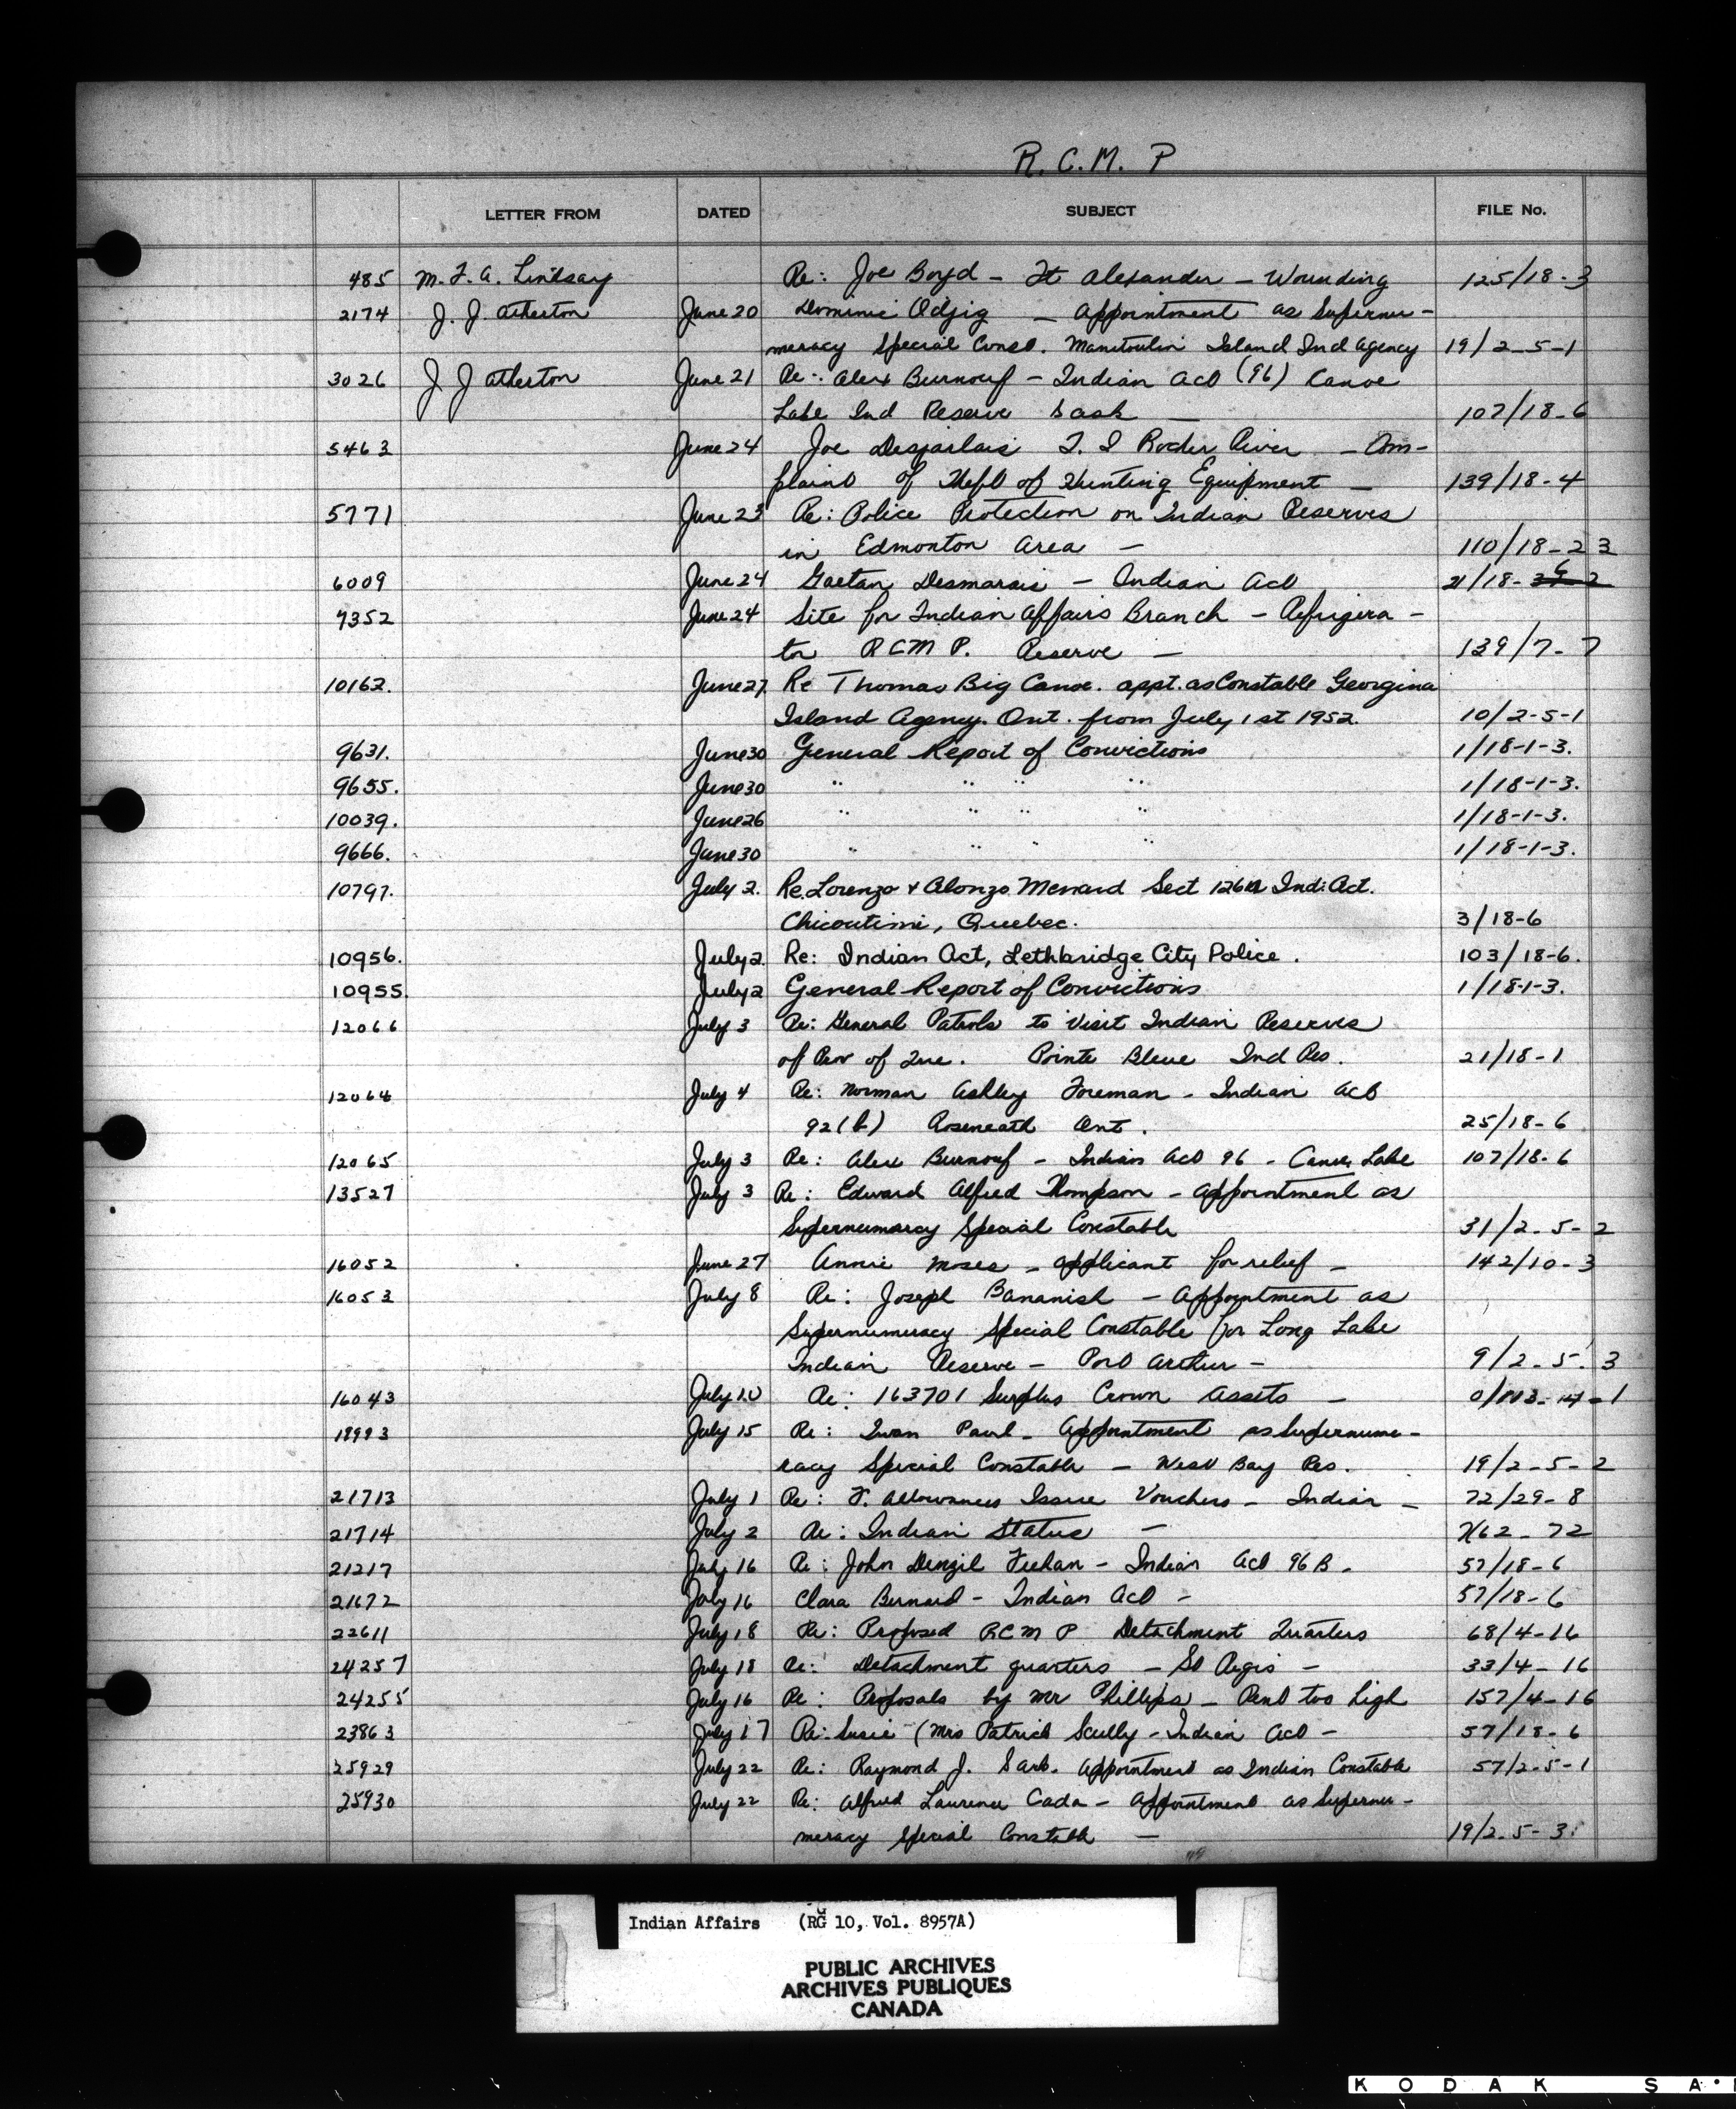 R. C. M. P
LETTER FROM DATED SUBJECT FILE No.
485 M. F. A. Lindsay Re: Joe Boyd - Ft Alexander - Wounding 125/18-3
2174 J. J. Atherton June 20 Dominic Odjig - Appointment as Supernu-
meracy Special Const. Manitoulin Island Ind Agency 19/2-5-1
3026 J J Atherton June 21 Re: Alex Burnouf - Indian Act (96) Canoe
Lake Ind Reserve Sask - 107/18-6
5463 June 24 Joe Desjarlais T. I Rocher River - Com-
plaint of Theft of Hunting Equipment - 139/18-4
5771 June 23 Re: Police Protection on Indian Reserves
in Edmonton Area - 110/18-23
6009 June 24 Gaetan Desmarais - Indian Act 21/18-6
7352 June 24 Site for Indian Affairs Branch - Refrigera-
tor RCMP. Reserve - 139/7-7
10162. June 27. Re Thomas Big Canoe. appt. as Constable Georgina
Island Agency. Ont. from July 1st 1952. 10/2-5-1
9631. June 30 General Report of Convictions 1/18-1-3.
9655. June 30 " " " " 1/18-1-3.
10039. June 26 " " " " 1/18-1-3.
9666. June 30 " " " " 1/18-1-3.
10797. July 2. Re. Lorenzo + Alonzo Menard Sect 126a Ind. Act.
Chicoutimi, Quebec. 3/18-6
10956. July 2. Re: Indian Act, Lethbridge City Police. 103/18-6.
10955. July 2 General Report of Convictions 1/18-1-3.
12066 July 3 Re: General Patrols to Visit Indian Reserves
of Prov of Que. Pointe Bleue Ind Res. 21/18-1
12064 July 4 Re: Norman Ashley Foreman - Indian Act
92(b) Roseneath Ont. 25/18-6
12065 July 3 Re: Alex Burnouf - Indian Act 96 - Canoe Lake 107/18-6
13527 July 3 Re: Edward Alfred Thompson - Appointment as
Supernumarcy Special Constable 31/2-5-2
16052 June 27 Annie Moses - applicant for relief - 142/10-3
16053 July 8 Re: Joseph Bananish - Appointment as
Supernumeracy Special Constable for Long Lake
Indian Reserve - Port Arthur - 9/2-5-3
16043 July 10 Re: 163701 Surplus Crown Assets -
July 15 Re: Paul - Appointment as Supernume-
racy Special Constable - West Bay Res. 19/2-5-2
21713 July 1 Re: F. Allowances Issue Vouchers - Indian - 72/29-8
21714 July 2 Re: Indian Status -
21217 July 16 Re: John Denzil Feehan - Indian Act 96 B - 57/18-6
21672 July 16 Clara Bernard - Indian Act - 57/18-6
22611 July 18 Re: Proposed RCMP Detachment Quarters 68/4-16
24257 July 18 Re: Detachment quarters - St Regis - 33/4-16
24255 July 16 Re: Proposals by Mr Phillips - Rent too high 157/4-16
23863 July 17 Re: Susie (Mrs Patrick Scully - Indian Act - 57/18-6
25929 July 22 Re: Raymond J. Sark. Appointment as Indian Constable 57/2-5-1
25930 July 22 Re: Alfred Laurence Cada - Appointment as Supernu-
meracy Special Constable - 19/2-5-3
Indian Affairs (RG 10, Vol. 8957A)
PUBLIC ARCHIVES
ARCHIVES PUBLIQUES
CANADA
KODAK